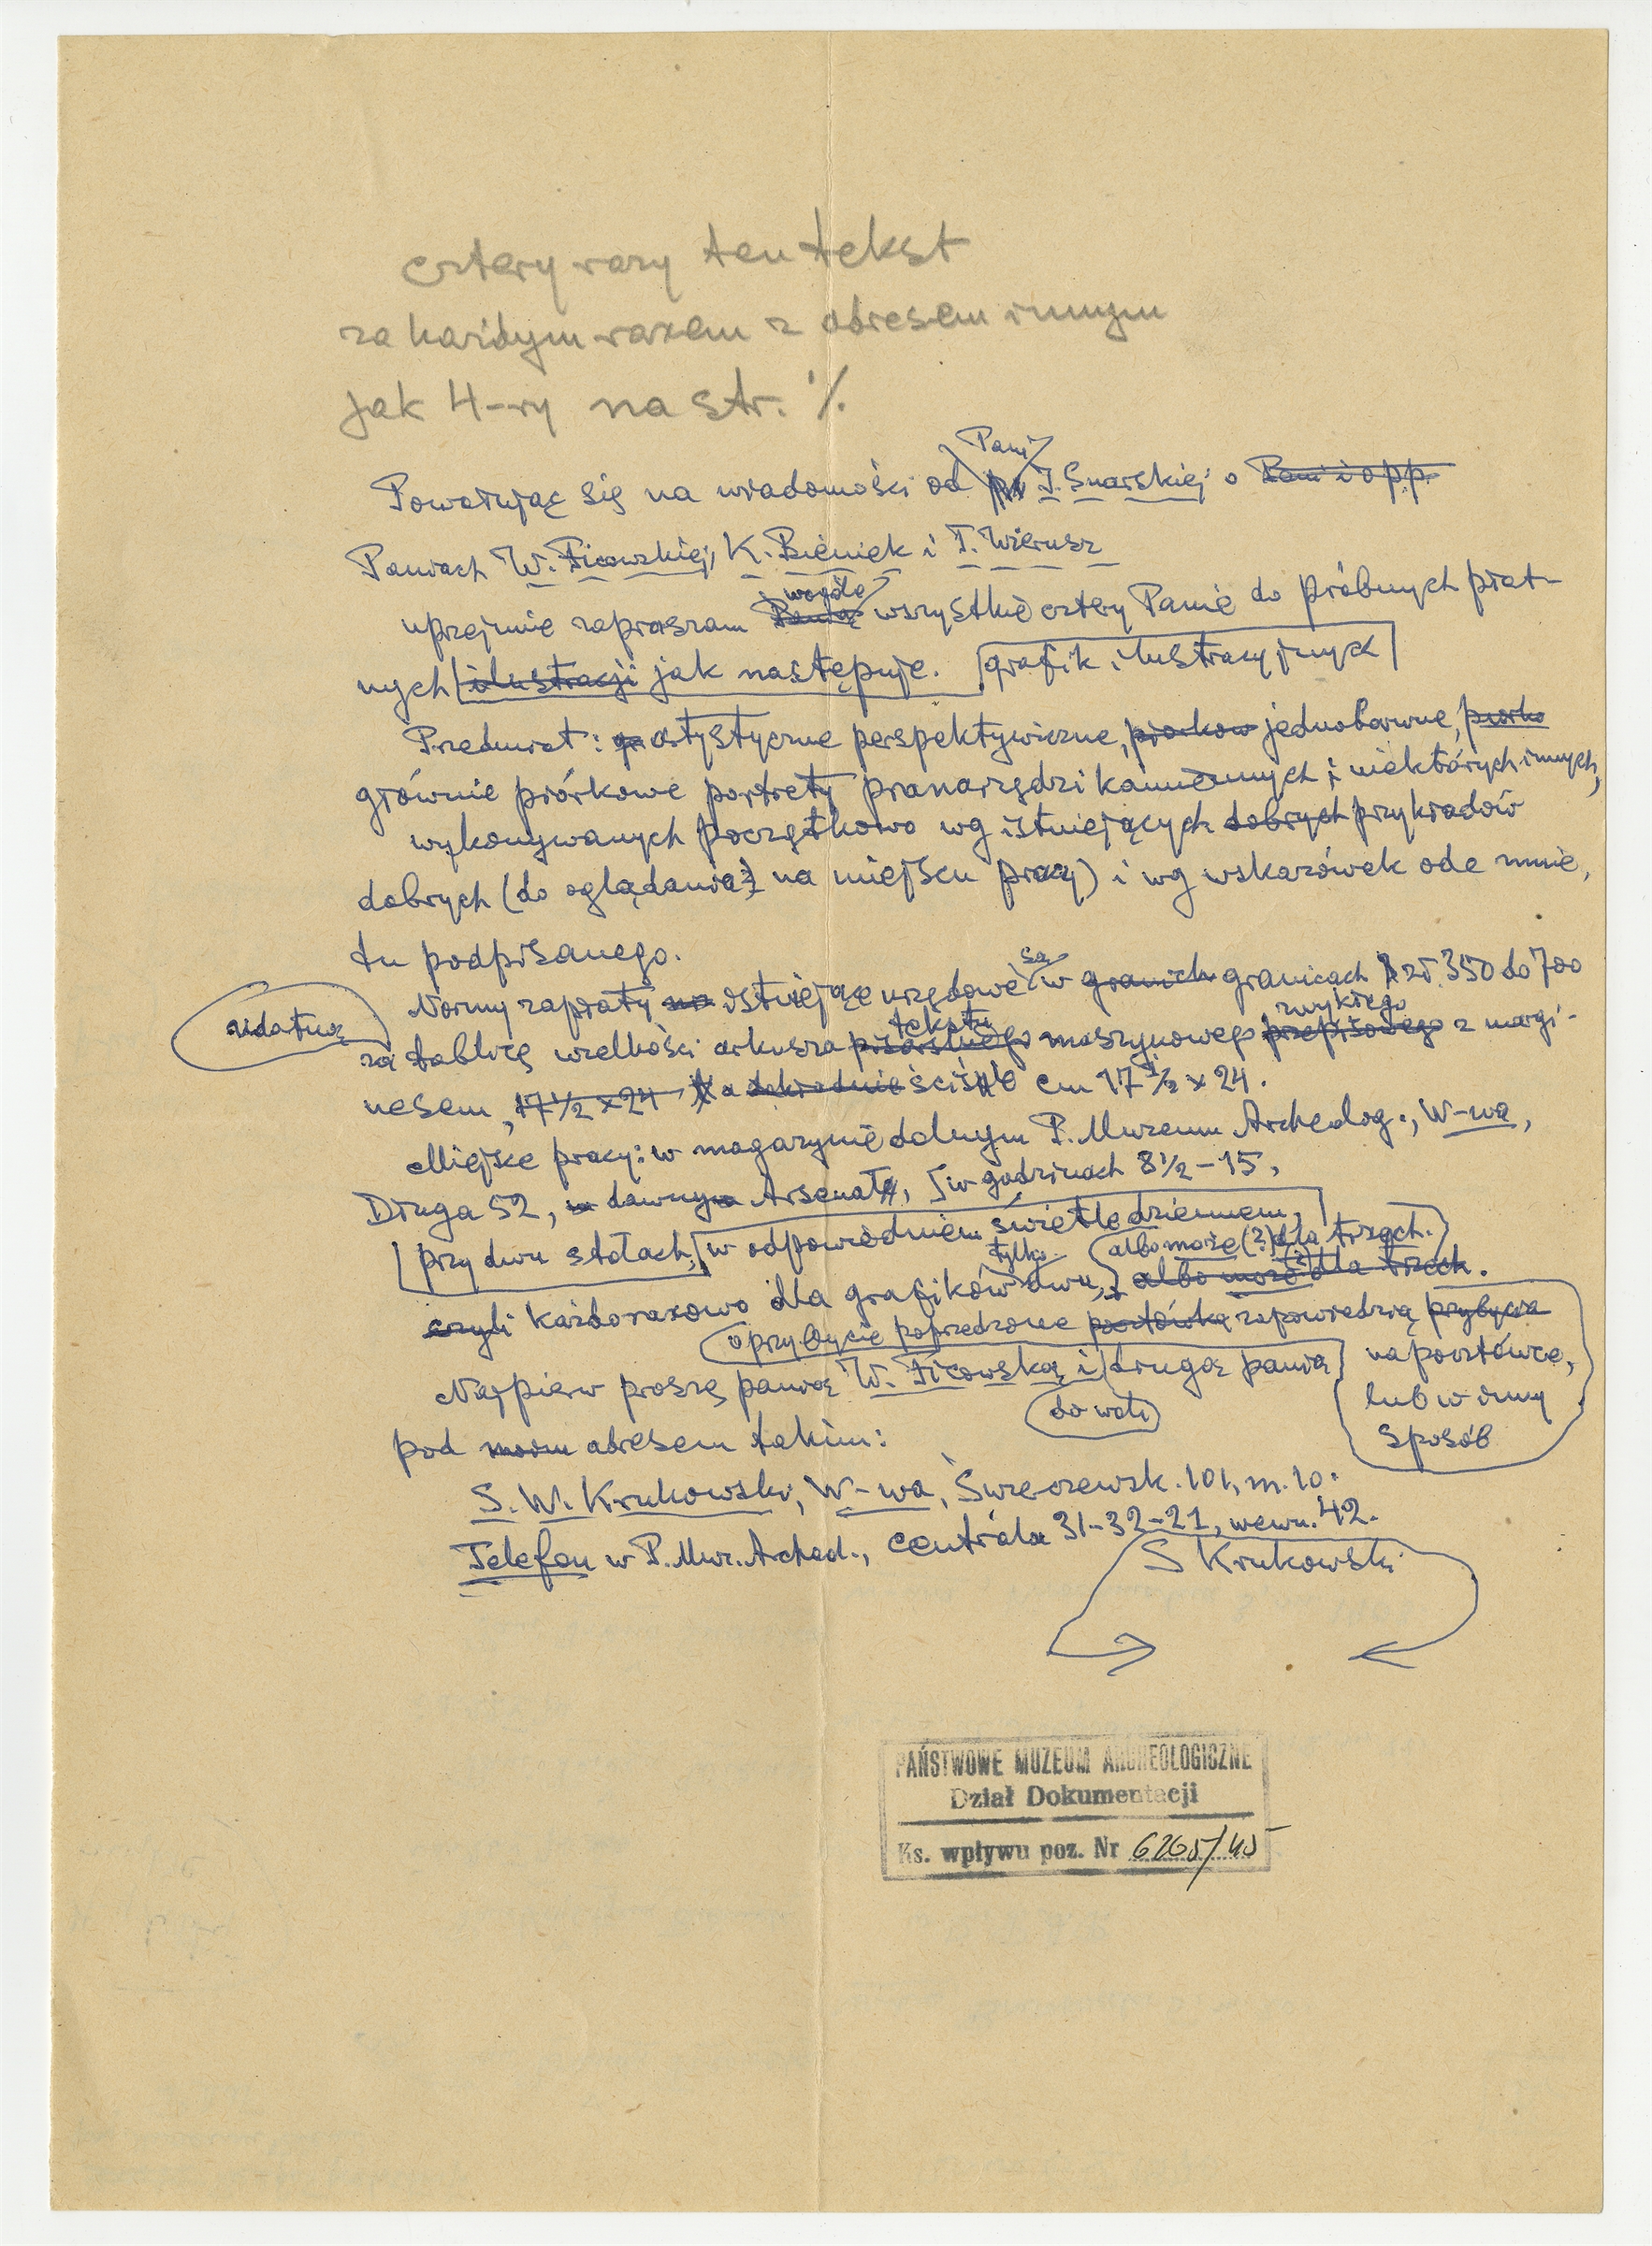 cztery razy ten tekst
za każdym razem z adresem innym
jak 4-ry na str. ./.
Pani
Powołując się na wiadomości od J. Snarskiej o Pani i o pp.
Paniach W. Ficowskiej, K. Bieniek i T. Wierusz
wogóle
uprzejmie zapraszam Panią wszystkie cztery Panie do próbnych płat-
nych ilustracji jak następuje. grafik ilustracyjnych
Przedmiot: artystyczne perspektywiczne, piórkow jednobarwne, piórko
głównie piórkowe portrety pranarzędzi kamiennych i niektórych innych,
wykonywanych początkowo wg istniejących dobrych przykładów
dobrych (do oglądania na miejscu pracy) i wg wskazówek ode mnie,
tu podpisanego.
są
Normy zapłaty istniejące urzędowe w granich granicach zł. 350 do 700
tekstu zwykłego
za tablicę wielkości arkusza pisarskiego maszynowego przepisowego z margi-
nesem, 17 1/2 x 24 a dokładnie ściśle cm 17 1/2 x 24.
Miejsce pracy: w magazynie dolnym P. Muzeum Archeolog., W-wa,
Długa 52, w dawnym Arsenał, w godzinach 8 1/2 - 15,
przy dwu stołach, w odpowiedniem świetle dziennem,
tylko albo może (?) dla trzech.
czyli każdorazowo dla grafików dwu, albo może (?) dla trzech.
o przybycie poprzedzone pocztówką zapowiedzią przybycia
Najpierw proszę panią W. Ficowską i drugą panią na pocztówce,
do woli
lub w inny
sposób
pod moim adresem takim:
S. W. Krukowski, W-wa, Świerczewsk. 101, m. 10.
Telefon w P. Muz. Archeol., centrala 31-32-21, wewn. 42.
S Krukowski
PAŃSTWOWE MUZEUM ARCHEOLOGICZNE
Dział Dokumentacji
Ks. wpływu poz. Nr 6265/45